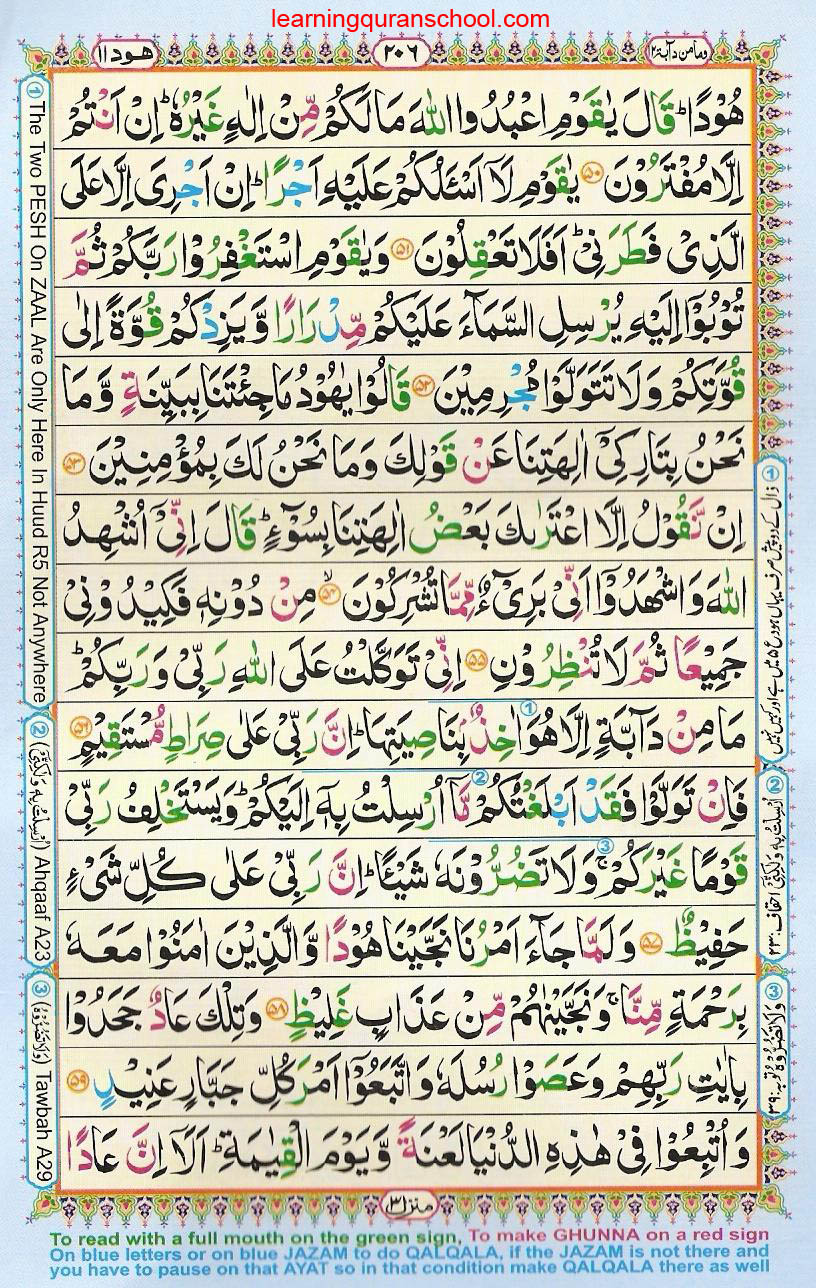 learningquranschool.com
وما من دآبۃ ۱۲
۲۰۶
هود ۱۱
هُوۡدًا ؕ قَالَ يٰقَوۡمِ اعۡبُدُوا اللّٰهَ مَا لَكُمۡ مِّنۡ اِلٰهٍ غَيۡرُهٗ ؕ اِنۡ اَنۡتُمۡ
اِلَّا مُفۡتَرُوۡنَ ۵۰ يٰقَوۡمِ لَاۤ اَسۡـَٔلُكُمۡ عَلَيۡهِ اَجۡرًا ؕ اِنۡ اَجۡرِىَ اِلَّا عَلَى
الَّذِىۡ فَطَرَنِىۡ ؕ اَفَلَا تَعۡقِلُوۡنَ ۵۱ وَيٰقَوۡمِ اسۡتَغۡفِرُوۡا رَبَّكُمۡ ثُمَّ
تُوۡبُوۡۤا اِلَيۡهِ يُرۡسِلِ السَّمَآءَ عَلَيۡكُمۡ مِّدۡرَارًا وَّيَزِدۡكُمۡ قُوَّةً اِلٰى
قُوَّتِكُمۡ وَلَا تَتَوَلَّوۡا مُجۡرِمِيۡنَ ۵۲ قَالُوۡا يٰهُوۡدُ مَا جِئۡتَنَا بِبَيِّنَةٍ وَّمَا
نَحۡنُ بِتَارِكِىۡۤ اٰلِهَتِنَا عَنۡ قَوۡلِكَ وَمَا نَحۡنُ لَكَ بِمُؤۡمِنِيۡنَ ۵۳
اِنۡ نَّقُوۡلُ اِلَّا اعۡتَرٰٮكَ بَعۡضُ اٰلِهَتِنَا بِسُوۡٓءٍ ؕ قَالَ اِنِّىۡۤ اُشۡهِدُ
اللّٰهَ وَاشۡهَدُوۡۤا اَنِّىۡ بَرِىۡٓءٌ مِّمَّا تُشۡرِكُوۡنَ ۵۴ ۙ مِنۡ دُوۡنِهٖ فَكِيۡدُوۡنِىۡ
جَمِيۡعًا ثُمَّ لَا تُنۡظِرُوۡنِ ۵۵ اِنِّىۡ تَوَكَّلۡتُ عَلَى اللّٰهِ رَبِّىۡ وَرَبِّكُمۡ ؕ
مَا مِنۡ دَآبَّةٍ اِلَّا هُوَ اٰخِذٌۢ بِنَاصِيَتِهَا ؕ اِنَّ رَبِّىۡ عَلٰى صِرَاطٍ مُّسۡتَقِيۡمٍ ۵۶
فَاِنۡ تَوَلَّوۡا فَقَدۡ اَبۡلَغۡتُكُمۡ مَّاۤ اُرۡسِلۡتُ بِهٖۤ اِلَيۡكُمۡ ؕ وَيَسۡتَخۡلِفُ رَبِّىۡ
قَوۡمًا غَيۡرَكُمۡ ۚ وَلَا تَضُرُّوۡنَهٗ شَيۡـًٔا ؕ اِنَّ رَبِّىۡ عَلٰى كُلِّ شَىۡءٍ
حَفِيۡظٌ ۵۷ وَلَمَّا جَآءَ اَمۡرُنَا نَجَّيۡنَا هُوۡدًا وَّالَّذِيۡنَ اٰمَنُوۡا مَعَهٗ
بِرَحۡمَةٍ مِّنَّا ۚ وَنَجَّيۡنٰهُمۡ مِّنۡ عَذَابٍ غَلِيۡظٍ ۵۸ وَتِلۡكَ عَادٌ جَحَدُوۡا
بِاٰيٰتِ رَبِّهِمۡ وَعَصَوۡا رُسُلَهٗ وَاتَّبَعُوۡۤا اَمۡرَ كُلِّ جَبَّارٍ عَنِيۡدٍ ۵۹
وَاُتۡبِعُوۡا فِىۡ هٰذِهِ الدُّنۡيَا لَعۡنَةً وَّيَوۡمَ الۡقِيٰمَةِ ؕ اَلَاۤ اِنَّ عَادًا
منزل ۳
① ذال کے دو پیش صرف یہاں ہود ع ۵ میں ہے اور کہیں نہیں
② اُرۡسِلۡتُ بِهٖ وَلٰكِنِّىۡۤ احقاف: ۲۳
③ وَلَا تَضُرُّوۡهُ توبہ: ۳۹
① The Two PESH On ZAAL Are Only Here In Huud R5 Not Anywhere
② (اُرۡسِلۡتُ بِهٖ وَلٰكِنِّىۡۤ) Ahqaaf A23
③ (وَلَا تَضُرُّوۡهُ) Tawbah A29
To read with a full mouth on the green sign, To make GHUNNA on a red sign
On blue letters or on blue JAZAM to do QALQALA, if the JAZAM is not there and
you have to pause on that AYAT so in that condition make QALQALA there as well